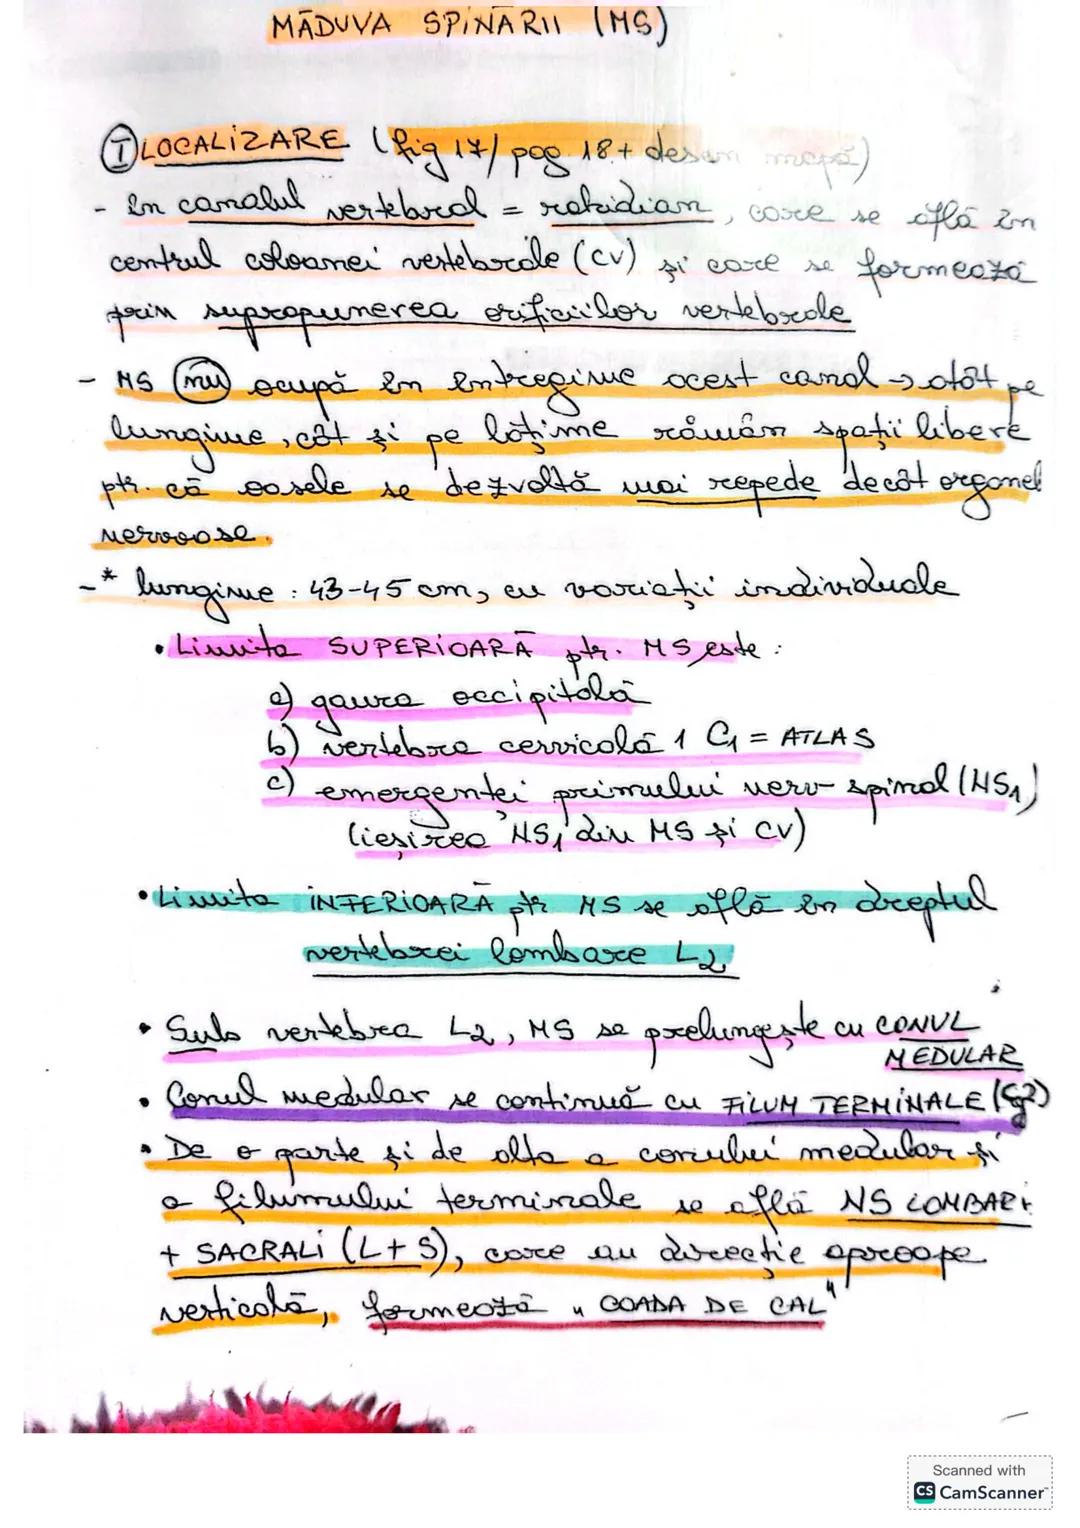 MĂDUVA SPINĂRII (MS)
I LOCALIZARE (fig 17/ pag 18 + desen mapă)
- în canalul vertebral = rahidian, care se află în
centrul coloanei vertebrale (CV) și care se formează
prin suprapunerea orificiilor vertebrale
- MS nu ocupă în întregime acest canal → atât pe
lungime, cât și pe lățime rămân spații libere
ptr. că oasele se dezvoltă mai repede decât organel
nervoase.
- * lungime : 43-45 cm, cu variații individuale
• Limita SUPERIOARĂ ptr. MS este :
a) gaura occipitală
b) vertebra cervicală 1 C1 = ATLAS
c) emergenței primului nerv spinal (NS1)
(ieșirea NS1 din MS și CV)
• Limita INFERIOARĂ ptr MS se află în dreptul
vertebrei lombare L2
• Sub vertebra L2, MS se prelungește cu CONUL
MEDULAR
• Conul medular se continuă cu FILUM TERMINALE
• De o parte și de alta a conului medular și
a filumului terminale se află NS LOMBARI
+ SACRALI (L+S), care au direcție aproape
verticală, formează „COADA DE CAL"
Scanned with
CS CamScanner